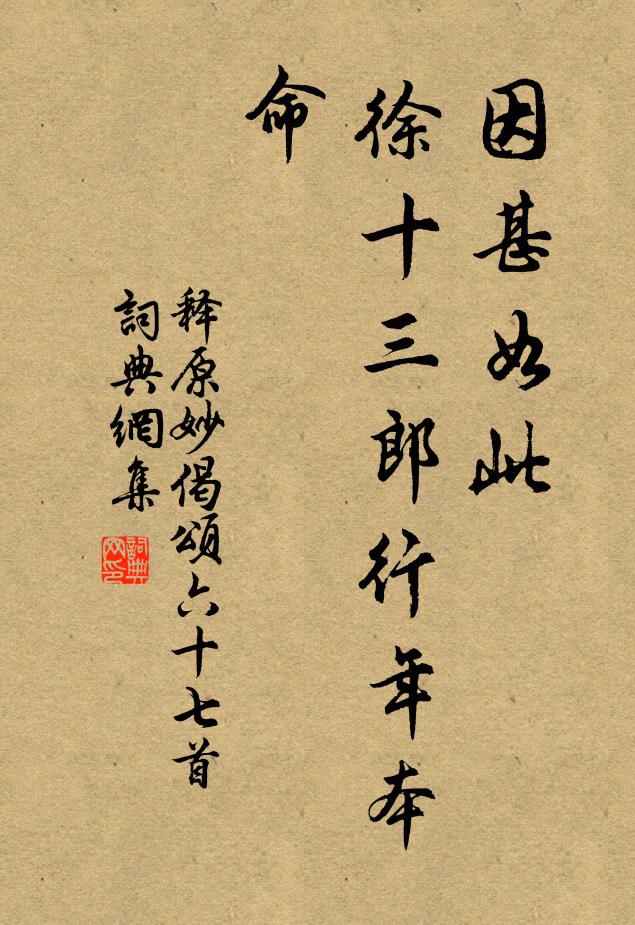 因甚如此
徐十三郎行年本
命
释原妙偈頌六十七首
詞典網集
詞典
网印